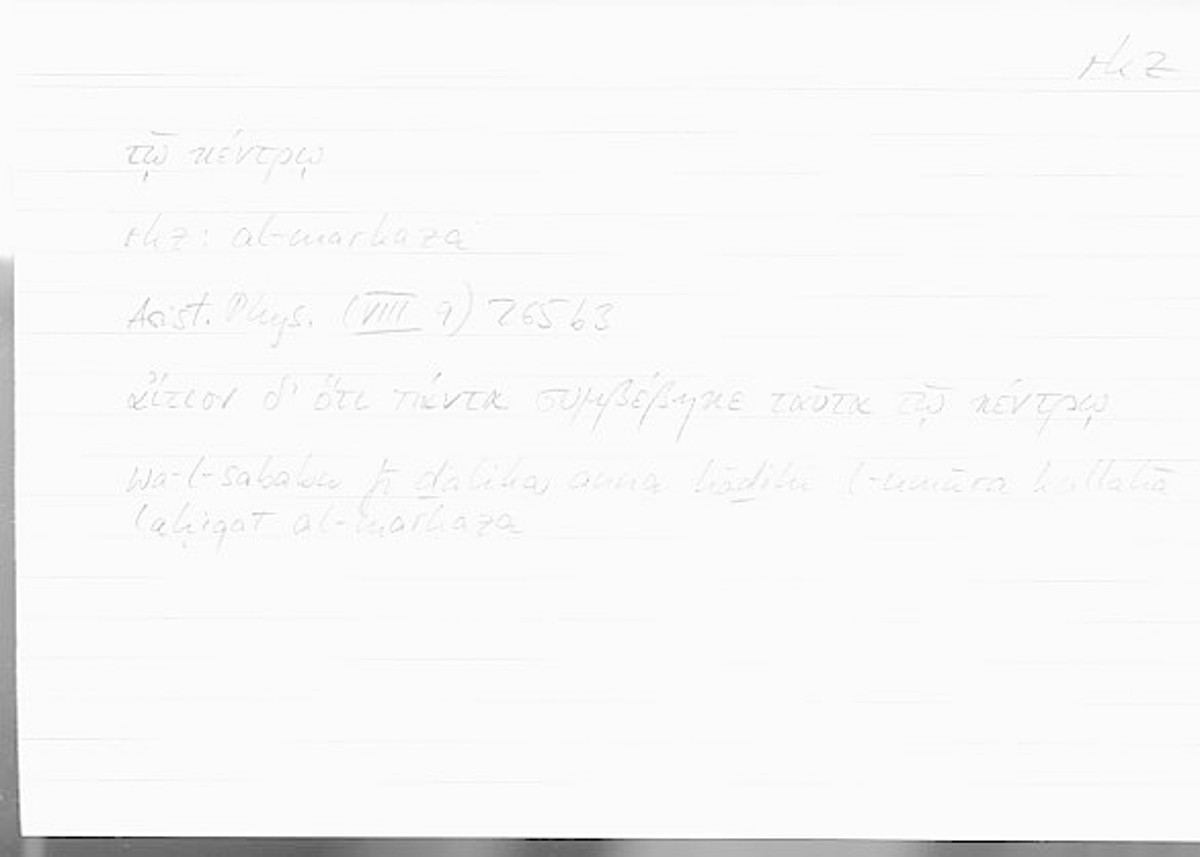 rkz
τῷ κέντρῳ
rkz: al-markaza
Arist. Phys. (VIII 9) 265b3
αἴτιον δ' ὅτι πάντα συμβέβηκε ταῦτα τῷ κέντρῳ
wa-l-sababu fī ḏālika, anna hāḏihi l-umūra kullahā
laḥiqat al-markaza